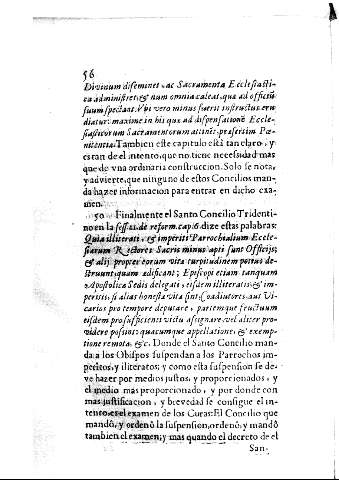 56
Divinum diseminet, ac Sacramenta Ecclesiasti-
ca administret, & num omnia caleat, quæ ad officiũ
suum spectant. Vbi vero minus fuerit instructus eru
diatur: maxime in his quæ ad dispensationẽ Eccle-
siasticorum Sacramentorum attinẽt, præsertim Pœ-
nitentiæ. Tambien este capitulo està tan claro, y
es tan de el intento, que no tiene necesidad mas
que de vna ordinaria construccion. Solo se nota,
y advierte, que ninguno de estos Concilios man-
da hazer informacion para entrar en dicho exa-
men.
50 Finalmente el Santo Concilio Tridenti-
no en la sess. 21. de reform. cap. 6. dize estas palabras:
Quia illiterati, & imperiti Parrochialium Eccle-
siarum Rectores Sacris minus apti sunt Officijs;
& alij propter eorum vitæ turpitudinem potius de-
struunt, quam ædificant; Episcopi etiam tanquam
Apostolicæ Sedis delegati, eisdem illiteratis, & im-
peritis, si alias honestæ vitæ sint, Coadiutores aut Vi-
carios pro tempore deputare, partemque fructuum
eisdem pro sufficienti victu assignare, vel aliter pro-
videre possint: quacumque appellatione, & exemp-
tione remota, &c. Donde el Santo Concilio man-
da a los Obispos suspendan a los Parrochos im-
peritos, y iliteratos; y como esta suspension se de-
ve hazer por medios justos, y proporcionados, y
el medio mas proporcionado, y por donde con
mas justificacion, y brevedad se consigue el in-
tento, es el examen de los Curas: El Concilio que
mandò, y ordenò la suspension, ordenò, y mandò
tambien el examen; y mas quando el decreto de el
San-